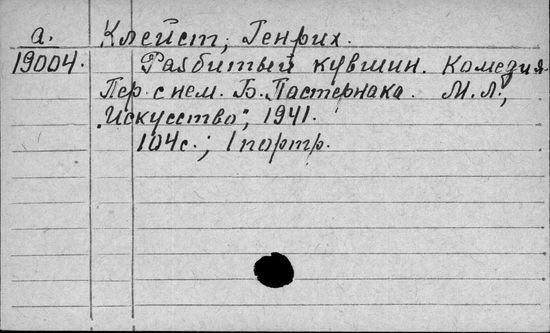 а. Клейст, Генрих.
19004. Разбитый кувшин. Комедия.
Пер. с нем. Б. Пастернака. М. Л.,
"Искусство", 1941.
104 с.; 1 портр.